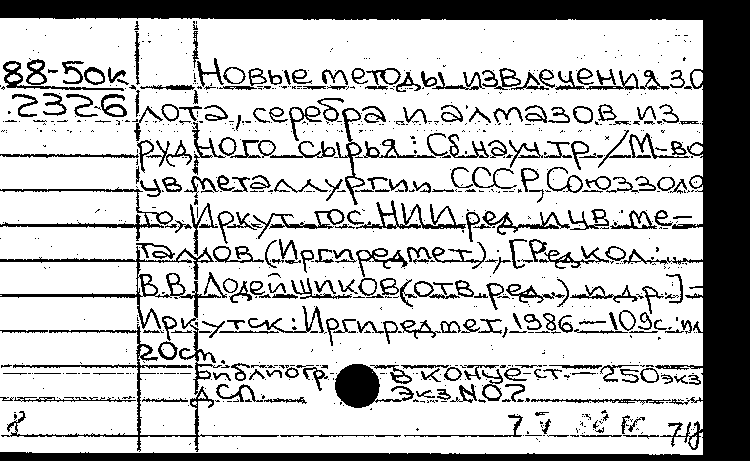 88-5ок Новые методы извлечения зо
2326 лота, серебра и алмазов из
рудного сырья: Сб.науч.тр./М-во
цв.металлургии СССР,Союззоло
то, Иркут. гос. НИИ ред. и цв. ме-
таллов (Иргиредмет); [Редкол.:
В.В. Лодейщиков(отв.ред.) и др.]-
Иркутск: Иргиредмет, 1986.-109с.
20см.
Библиогр. в конце ст. - 250экз
ДСП. Экз.№02
8 7.V 88